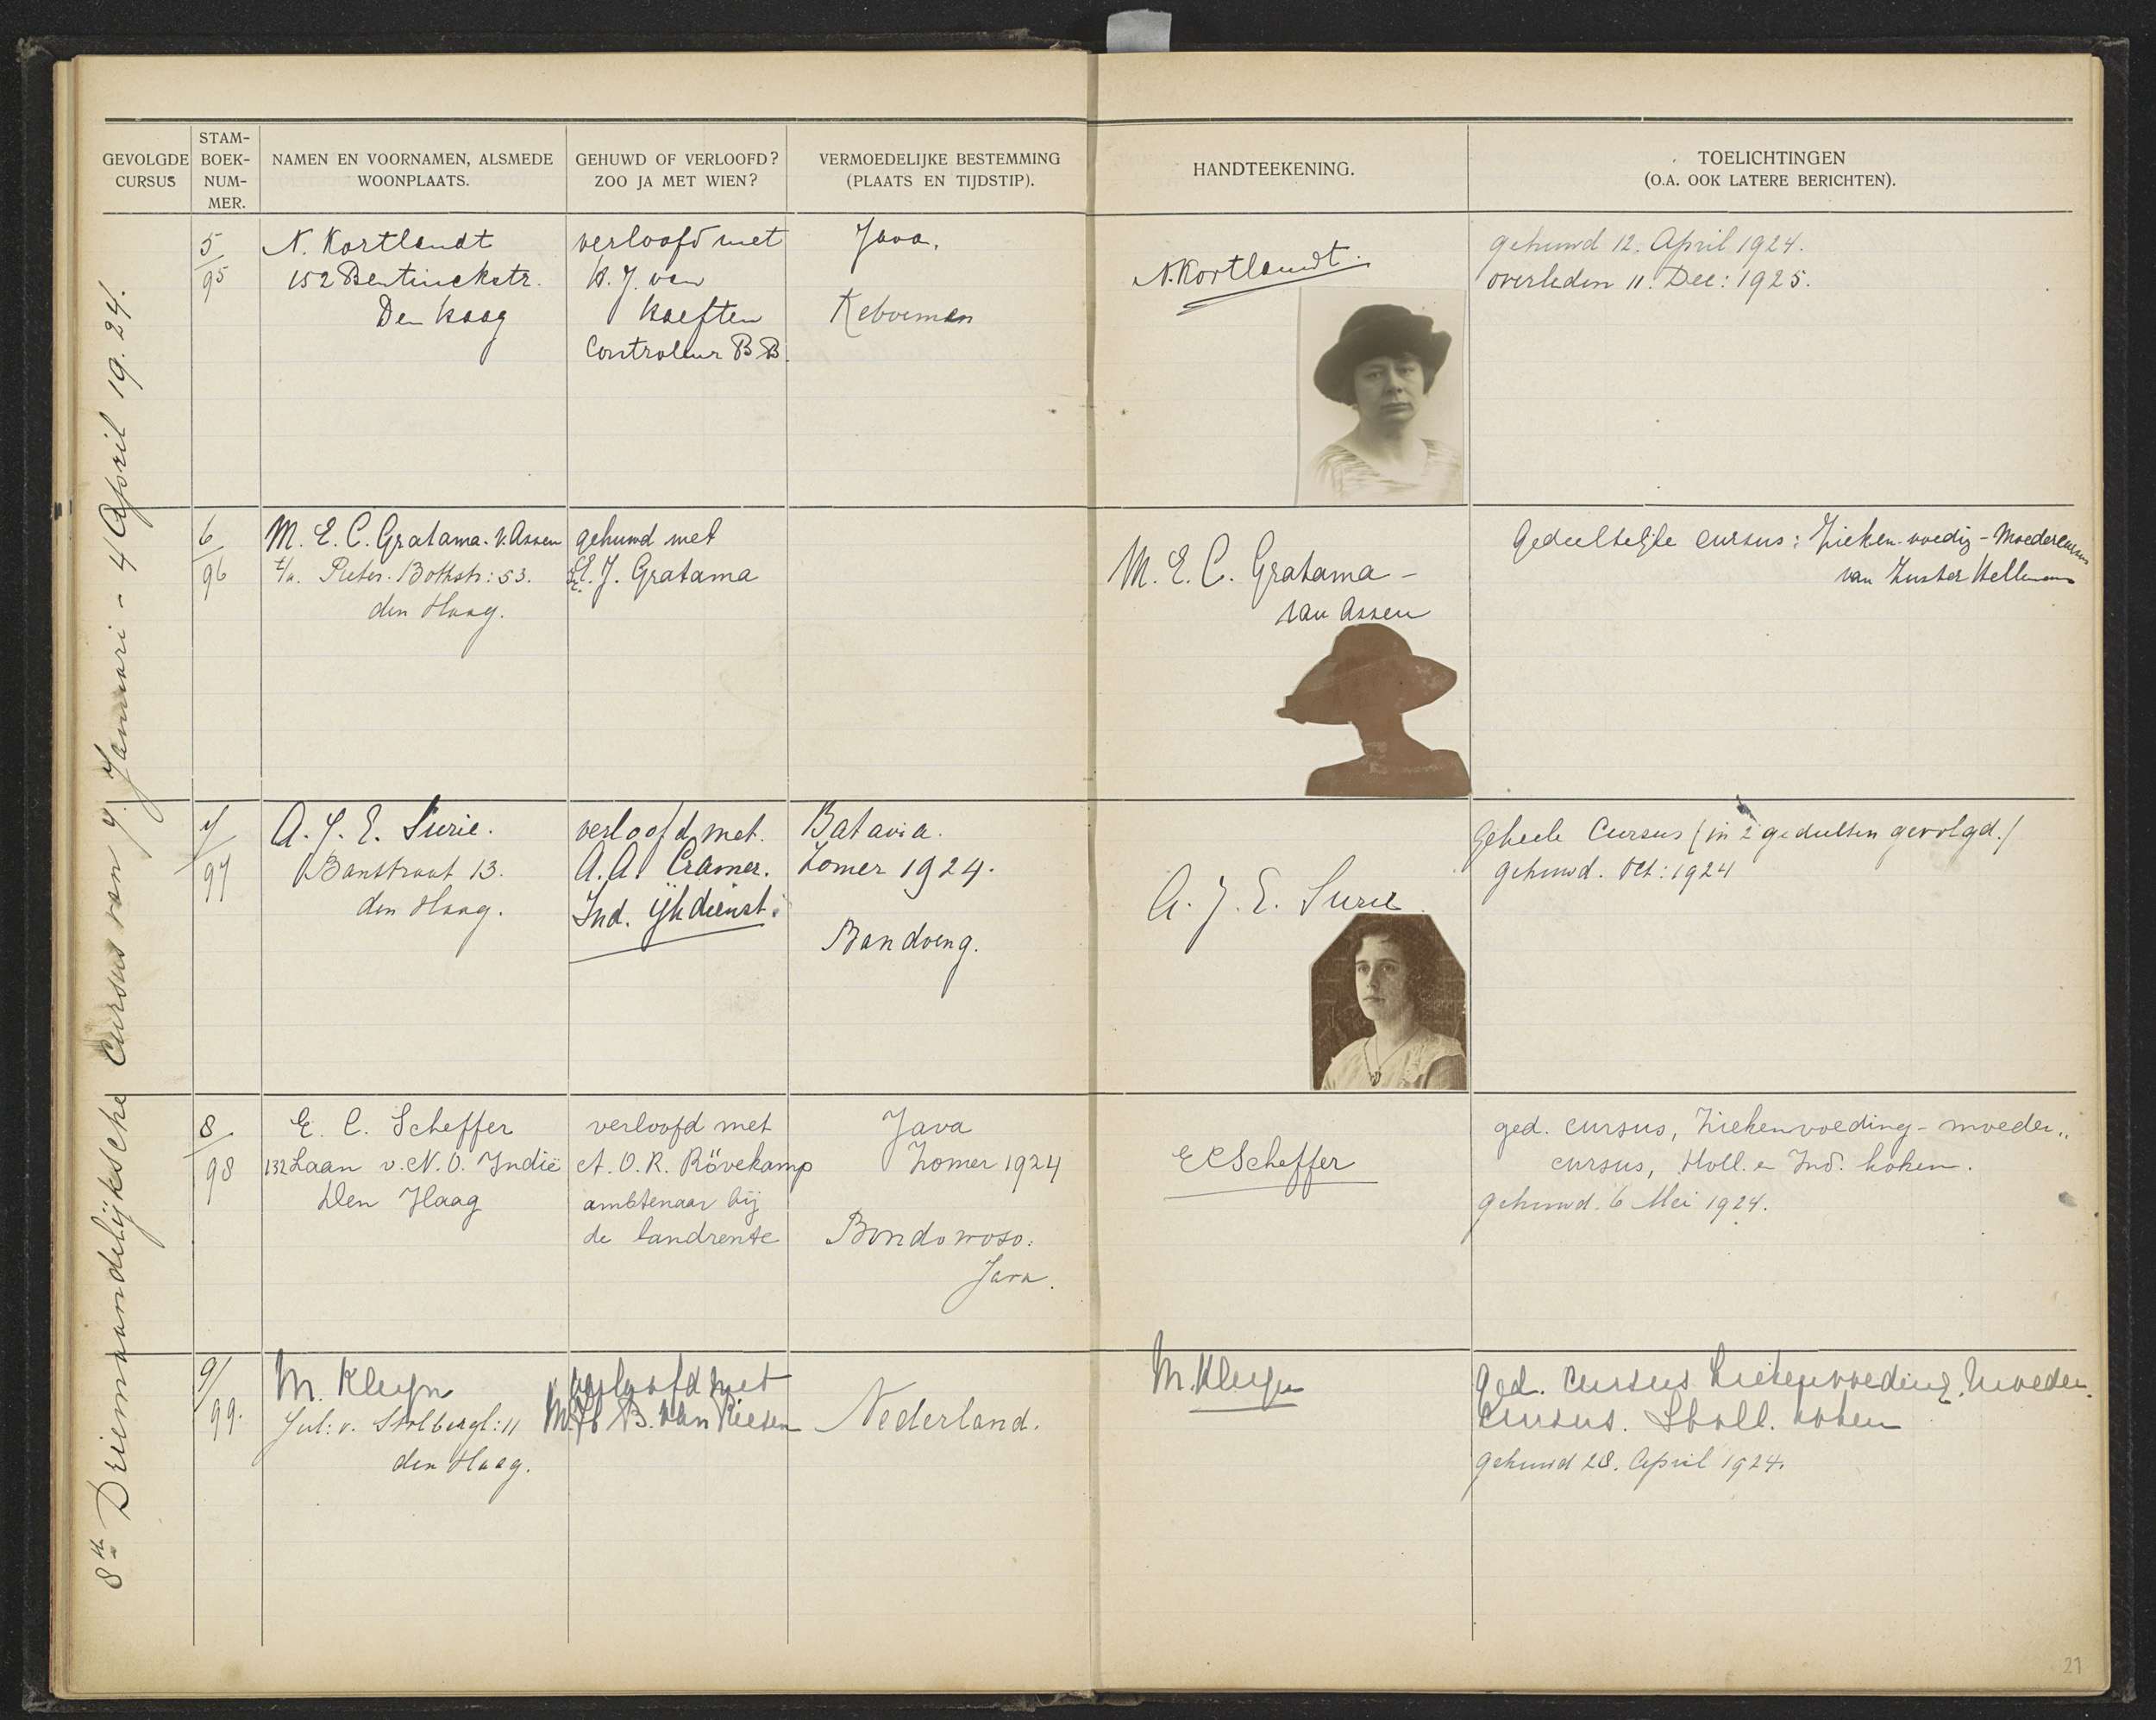 GEVOLGDE
CURSUS
STAM-
BOEK-
NUM-
MER.
NAMEN EN VOORNAMEN, ALSMEDE
WOONPLAATS.
GEHUWD OF VERLOOFD?
ZOO JA MET WIEN?
VERMOEDELIJKE BESTEMMING
(PLAATS EN TIJDSTIP).
HANDTEEKENING.
TOELICHTINGEN
(O.A. OOK LATERE BERICHTEN).
8ste Driemaandelijksche Cursus van 7. Januari - 4 April 19.24.
5/95
N. Kortlandt
152 Bentinckstr.
Den Haag
verloofd met
H. J. van
Haeften
Controleur B.B.
Java.
Keboemen
N. Kortlandt.
gehuwd 12. April 1924.
overleden 11. Dec: 1925.
6/96
M. E. C. Gratama-v. Assen
t/a. Pieter-Bothstr: 53.
den Haag.
gehuwd met
J. Gratama
M. E. C. Gratama -
van Assen
Gedeeltelijke cursus: Zieken-voedig - Moedercursus
van Zuster Hellemans
7/97
A. J. E. Surie.
Banstraat 13.
den Haag.
verloofd met
A. A. Cramer.
Ind. ijkdienst.
Batavia.
Zomer 1924.
Bandoeng.
A. J. E. Surie
Geheele Cursus (in 2 gedeelten gevolgd.)
gehuwd. Oct: 1924
8/98
E. C. Scheffer
132 Laan v. N. O. Indië
Den Haag
verloofd met
A. O. R. Rövekamp
ambtenaar bij
de landrente
Java
Zomer 1924
Bondowoso.
Java.
E C Scheffer
ged. cursus, Ziekenvoeding - moeder„
cursus, Holl. en Ind. koken.
gehuwd. 6 Mei 1924.
9/99.
M. Kleijn
Jul: v. Stolbergl: 11
den Haag.
verloofd met
B. van Riesen
Nederland.
M. Kleijn
Ged. cursus Ziekenvoeding. Moeder.
cursus. Holl. koken
gehuwd 28. April 1924.
21